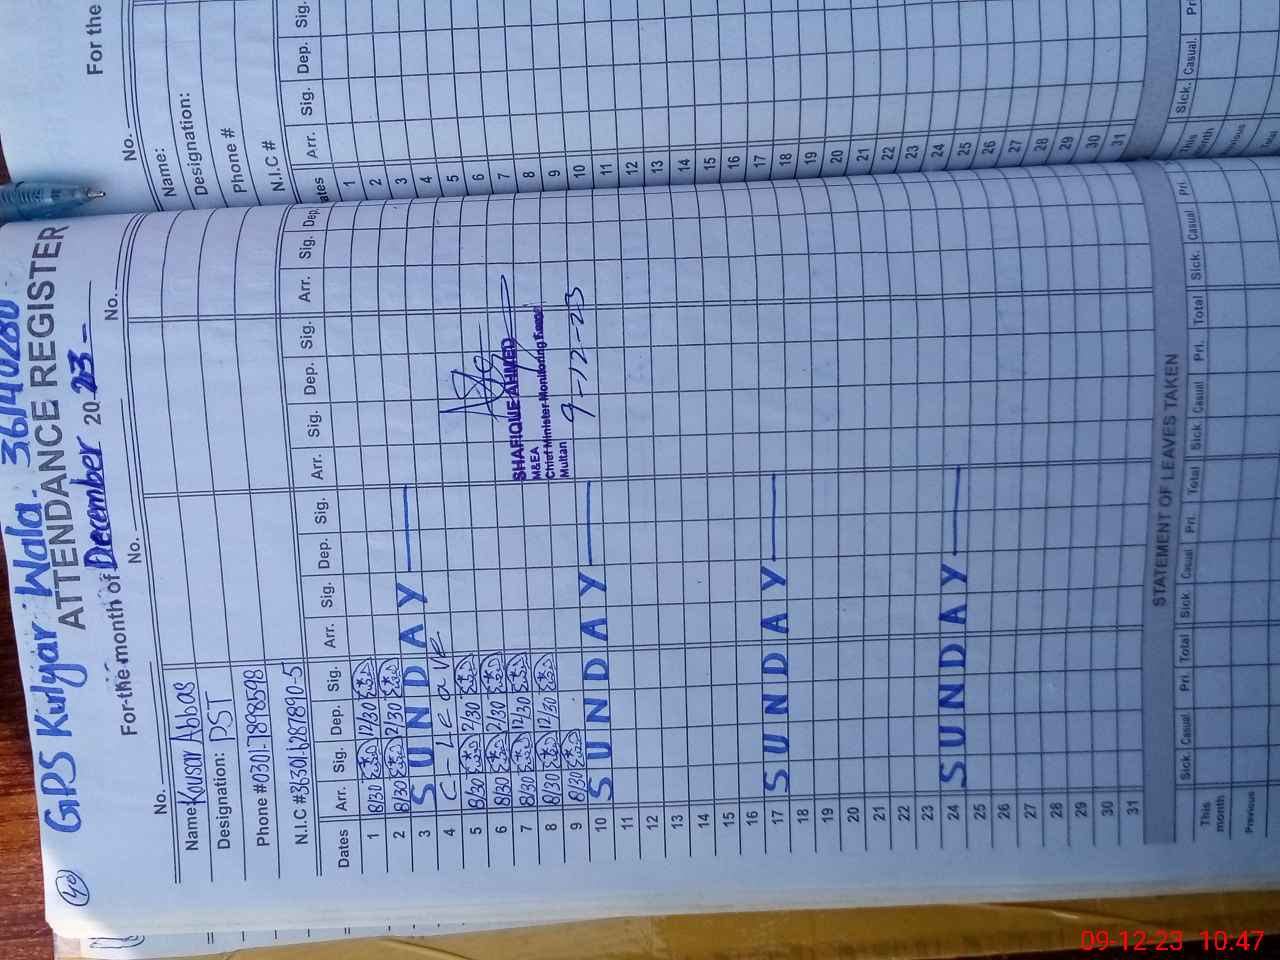 40
GPS Kulyar Wala. 36140280
ATTENDANCE REGISTER
For the month of December 2023
No. No. No.
Name Kousar Abbas
Designation: PST
Phone # 0301-7898598
N.I.C # 36301-6287890-5
Dates Arr. Sig. Dep. Sig. Arr. Sig. Dep. Sig. Arr. Sig. Dep. Sig. Arr. Sig. Dep.
1 8/30 12/30
2 8/30 2/30
3 SUNDAY
4 C-Leave
5 8/30 2/30
6 8/30 2/30
7 8/30 12/30
8 8/30 12/30
9 8/30
10 SUNDAY
11
12
13
14
15
16
17 SUNDAY
18
19
20
21
22
23
24 SUNDAY
25
26
27
28
29
30
31
SHAFIQUE AHMED
M&EA
Chief Minister Monitoring Force
Multan
9-12-23
STATEMENT OF LEAVES TAKEN
Sick. Casual Pri. Total Sick. Casual Pri. Total Sick. Casual Pri. Total Sick. Casual Pri.
This month
Previous
For the
No.
Name:
Designation:
Phone #
N.I.C #
Arr. Sig. Dep. Sig.
1
2
3
4
5
6
7
8
9
10
11
12
13
14
15
16
17
18
19
20
21
22
23
24
25
26
27
28
29
30
31
Sick. Casual.
09-12-23 10:47